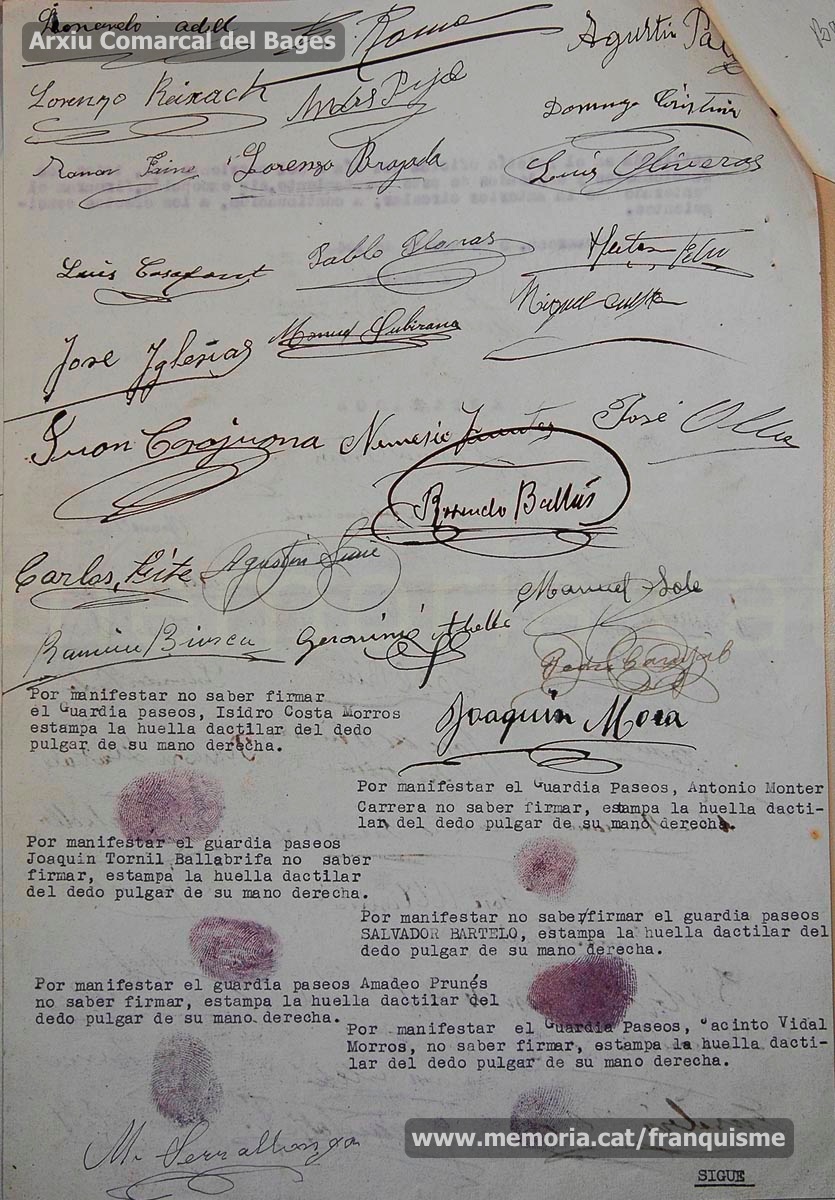 Arxiu Comarcal del Bages
Roma
Agustin
Lorenzo Reixach
Domingo
Lorenzo Brajada
Luis Oliveras
Luis
Pablo Llonas
Miquel
José Iglesias
Manuel Subirana
Juan Casajuona
Nemesio Fuentes
José
Rosendo Ballús
Carlos
Agustin
Manuel Sole
Geronimo
Joaquin Mora
Por manifestar no saber firmar
el Guardia paseos, Isidro Costa Morros
estampa la huella dactilar del dedo
pulgar de su mano derecha.
Por manifestar el Guardia Paseos, Antonio Monter
Carrera no saber firmar, estampa la huella dacti-
lar del dedo pulgar de su mano derecha.
Por manifestar el guardia paseos
Joaquin Tornil Ballabrifa no saber
firmar, estampa la huella dactilar
del dedo pulgar de su mano derecha.
Por manifestar no saber firmar el guardia paseos
SALVADOR BARTELO, estampa la huella dactilar del
dedo pulgar de su mano derecha.
Por manifestar el guardia paseos Amadeo Prunés
no saber firmar, estampa la huella dactilar del
dedo pulgar de su mano derecha.
Por manifestar el Guardia Paseos, Jacinto Vidal
Morros, no saber firmar, estampa la huella dacti-
lar del dedo pulgar de su mano derecha.
M. Serrallonga
www.memoria.cat/franquisme
SIGUE